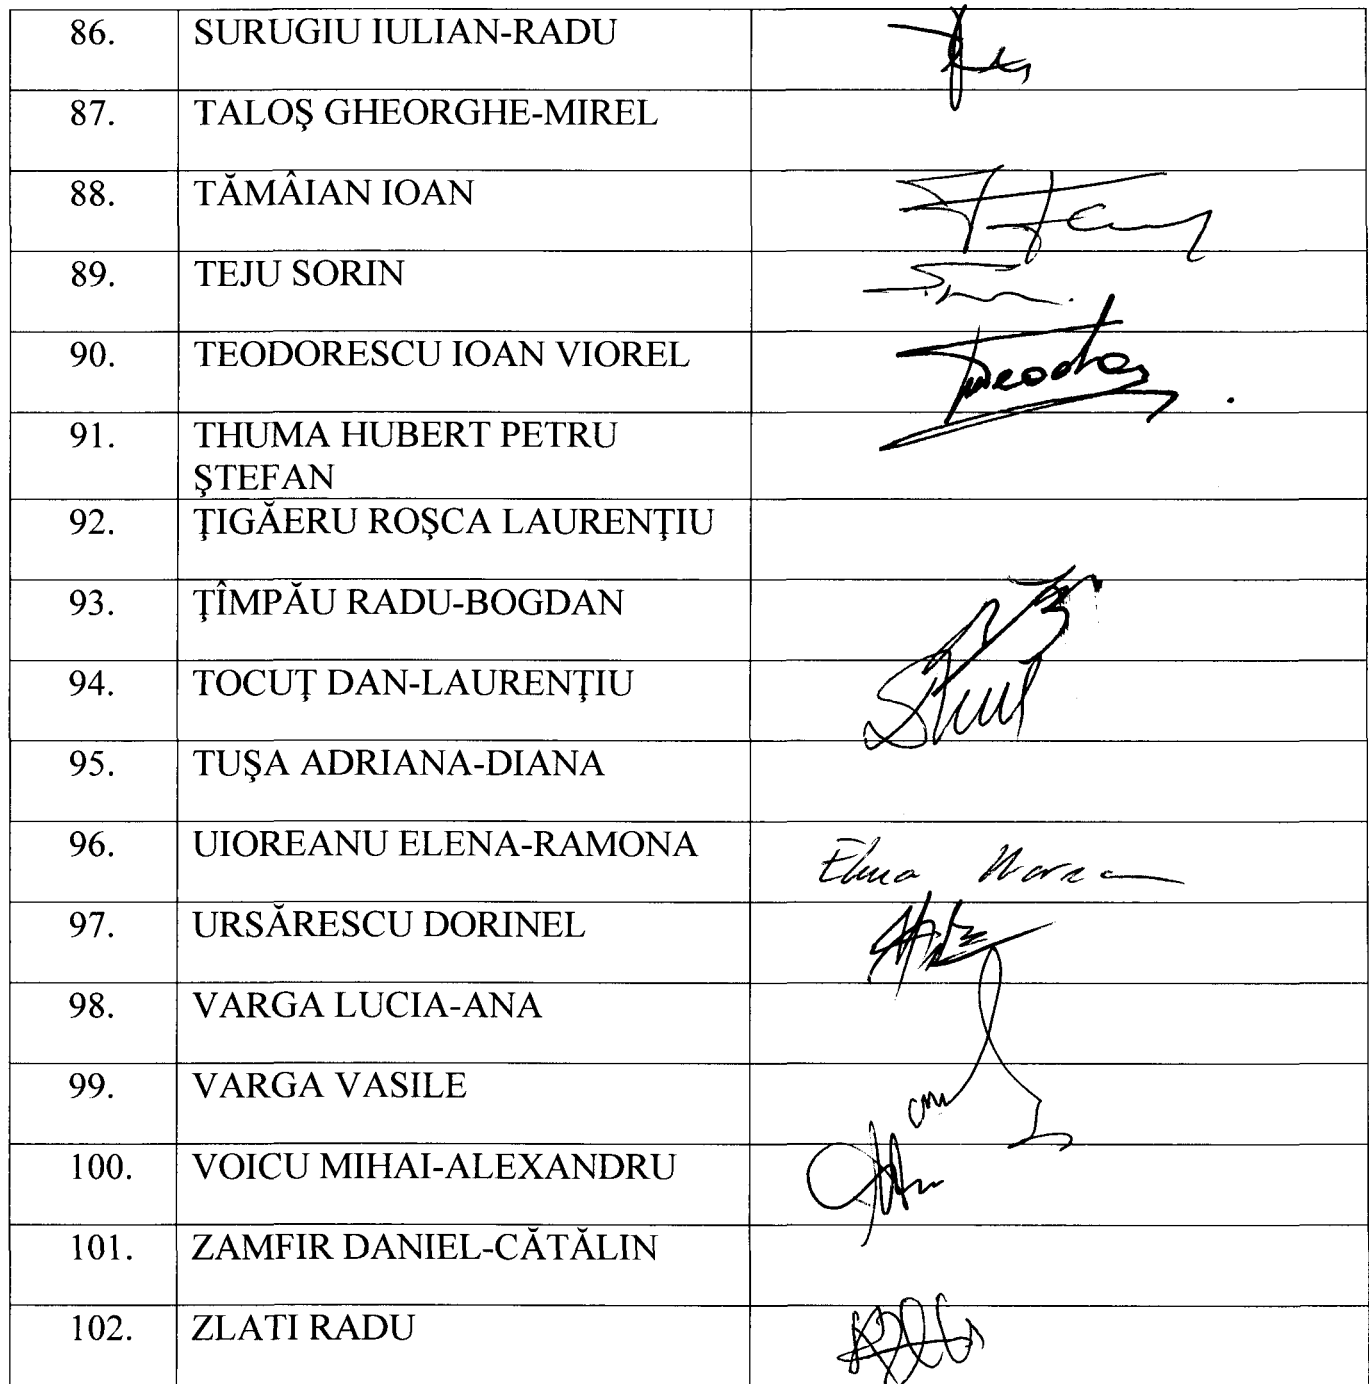 86. SURUGIU IULIAN-RADU
87. TALOŞ GHEORGHE-MIREL
88. TĂMÂIAN IOAN
89. TEJU SORIN
90. TEODORESCU IOAN VIOREL
91. THUMA HUBERT PETRU
ŞTEFAN
92. ŢIGĂERU ROŞCA LAURENŢIU
93. ŢÎMPĂU RADU-BOGDAN
94. TOCUŢ DAN-LAURENŢIU
95. TUŞA ADRIANA-DIANA
96. UIOREANU ELENA-RAMONA
97. URSĂRESCU DORINEL
98. VARGA LUCIA-ANA
99. VARGA VASILE
100. VOICU MIHAI-ALEXANDRU
101. ZAMFIR DANIEL-CĂTĂLIN
102. ZLATI RADU